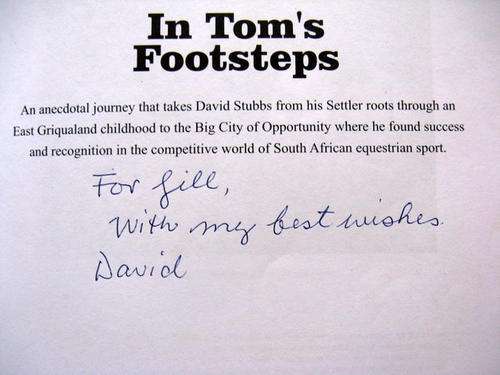 In Tom's
Footsteps
An anecdotal journey that takes David Stubbs from his Settler roots through an
East Griqualand childhood to the Big City of Opportunity where he found success
and recognition in the competitive world of South African equestrian sport.
For Jill,
With my best wishes.
David